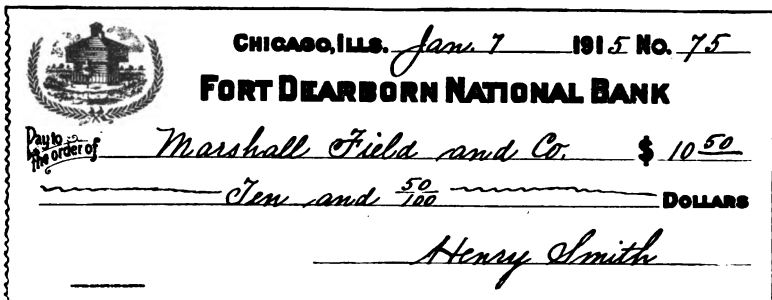 CHICAGO, ILLS. Jan. 7 1915 No. 75
FORT DEARBORN NATIONAL BANK
Pay to the order of Marshall Field and Co. $ 10 50
Ten and 50/100 DOLLARS
Henry Smith